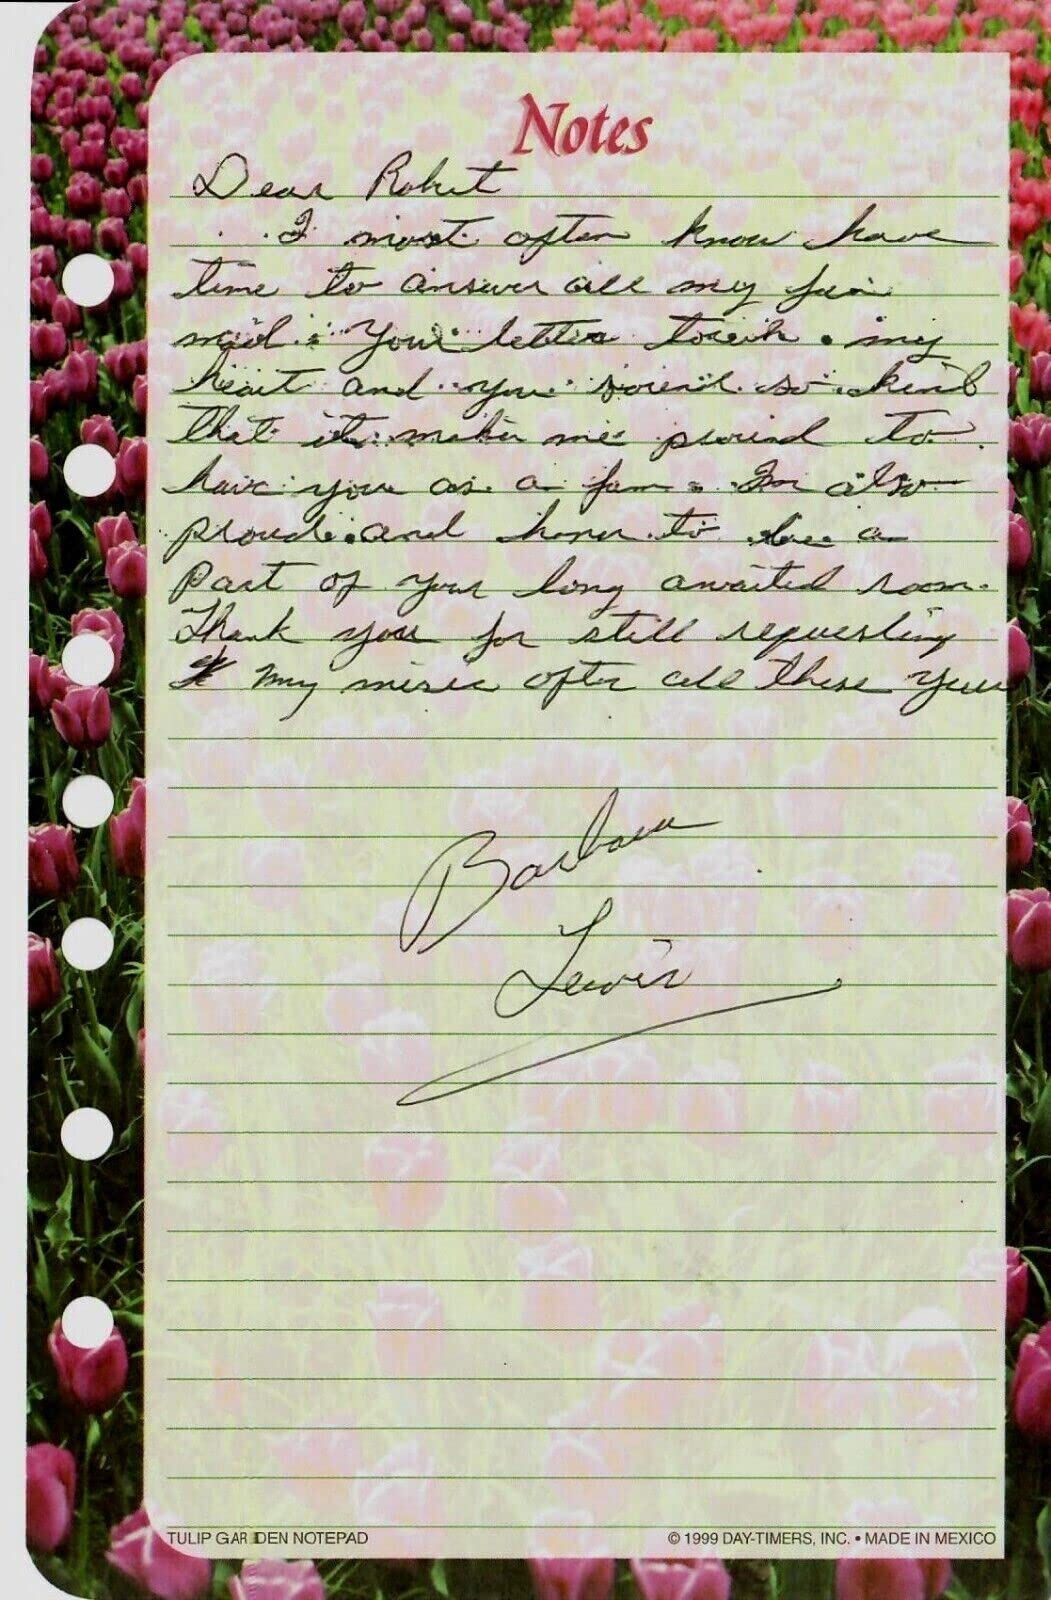 Notes
Dear Robert
I most often know have
time to answer all my fan
mail. Your letter touch my
heart and you sound so kind
that it makes me proud to
have you as a fan. Im also
proud and honor to be a
part of your long awaited room.
Thank you for still requesting
my music after all these years
Barbara
Lewis
TULIP GARDEN NOTEPAD
© 1999 DAY-TIMERS, INC. • MADE IN MEXICO